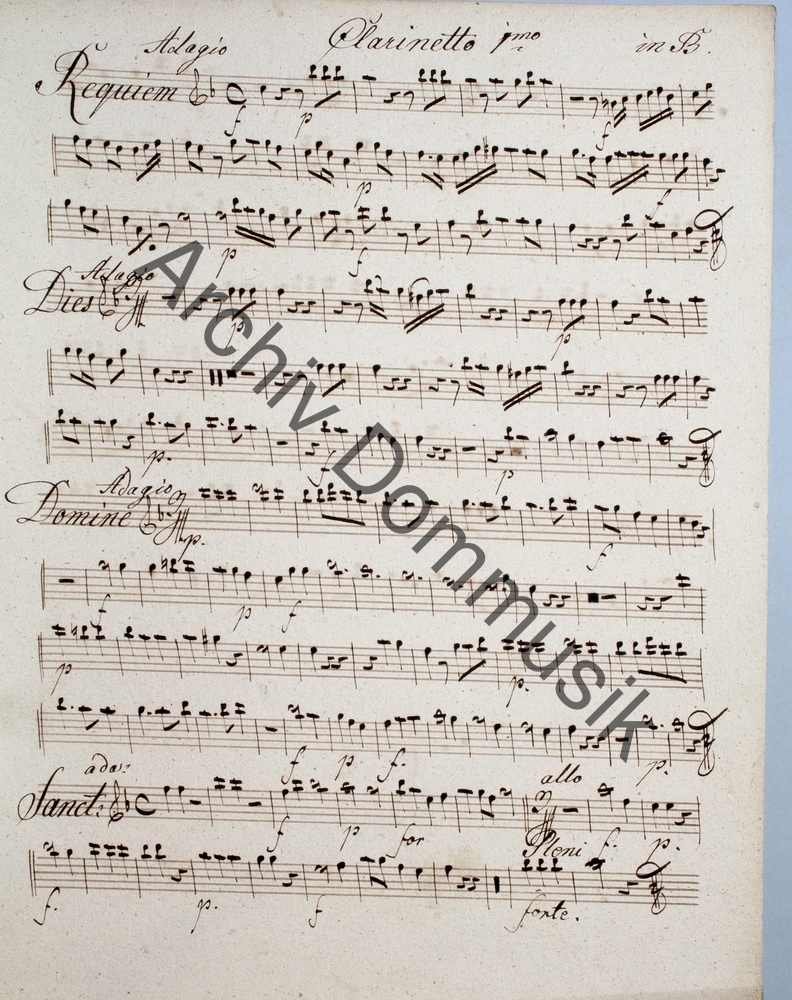 Adagio Clarinetto 1mo in B.
Requiem
f p f
p f
p f
Adagio
Dies
p p
p. f p
Adagio
Domine
p. f
f p f
p p.
f p f. p.
ada:
Sanct:
allo
f p for Pleni f. p.
f. p. f forte.
Archiv Dommusik